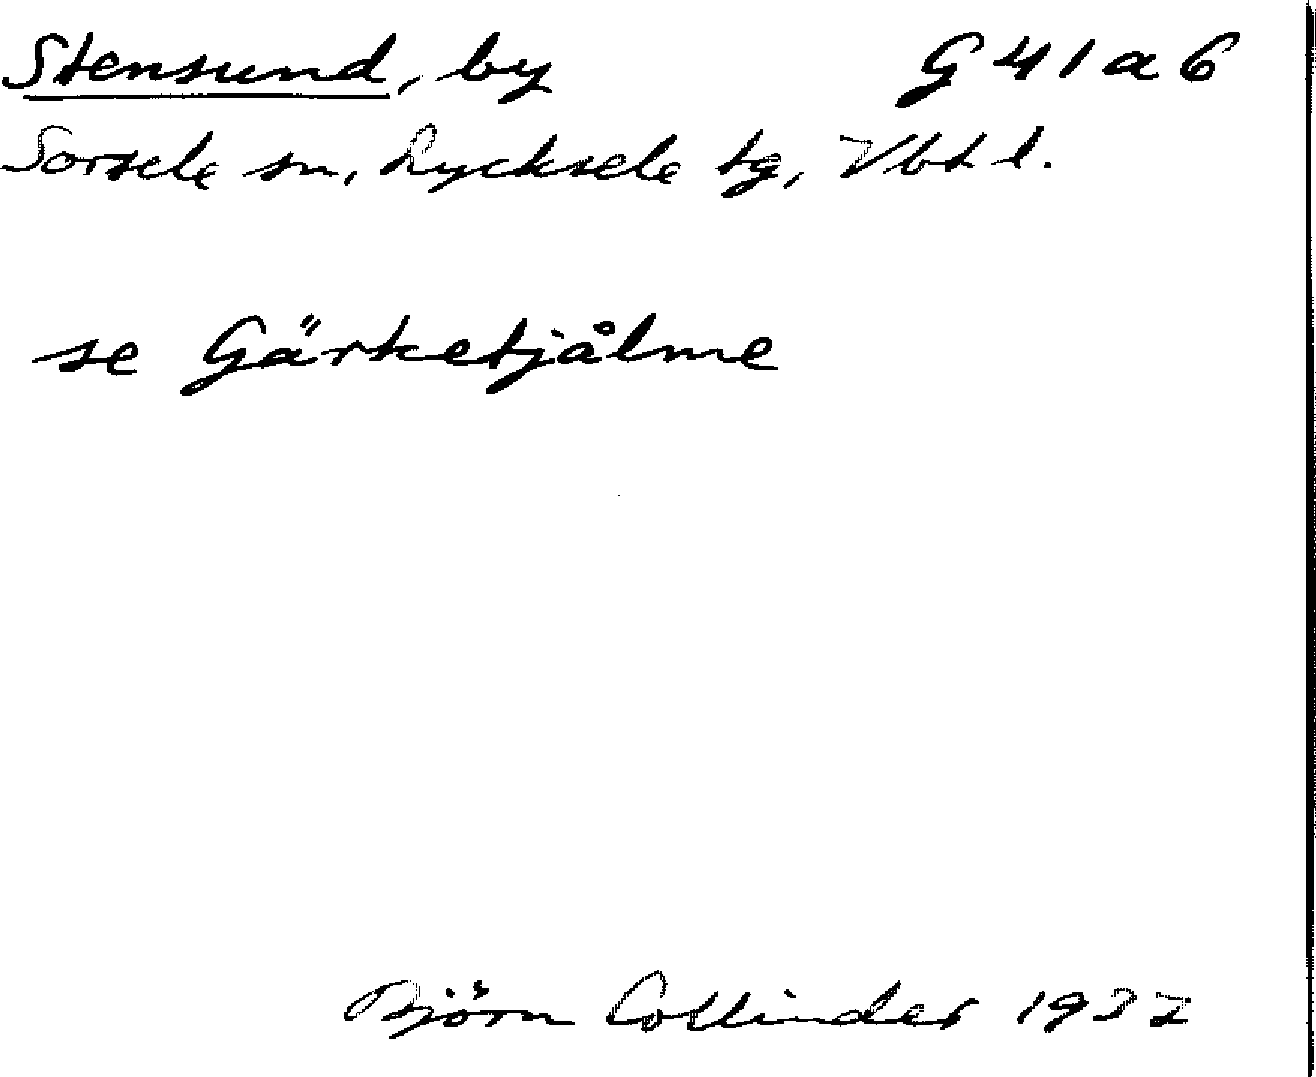 Stensund, by G 41 a 6
Sorsele sn, Lycksele tg, Vbt l.
se Gärketjålme
Björn Collinder 1937